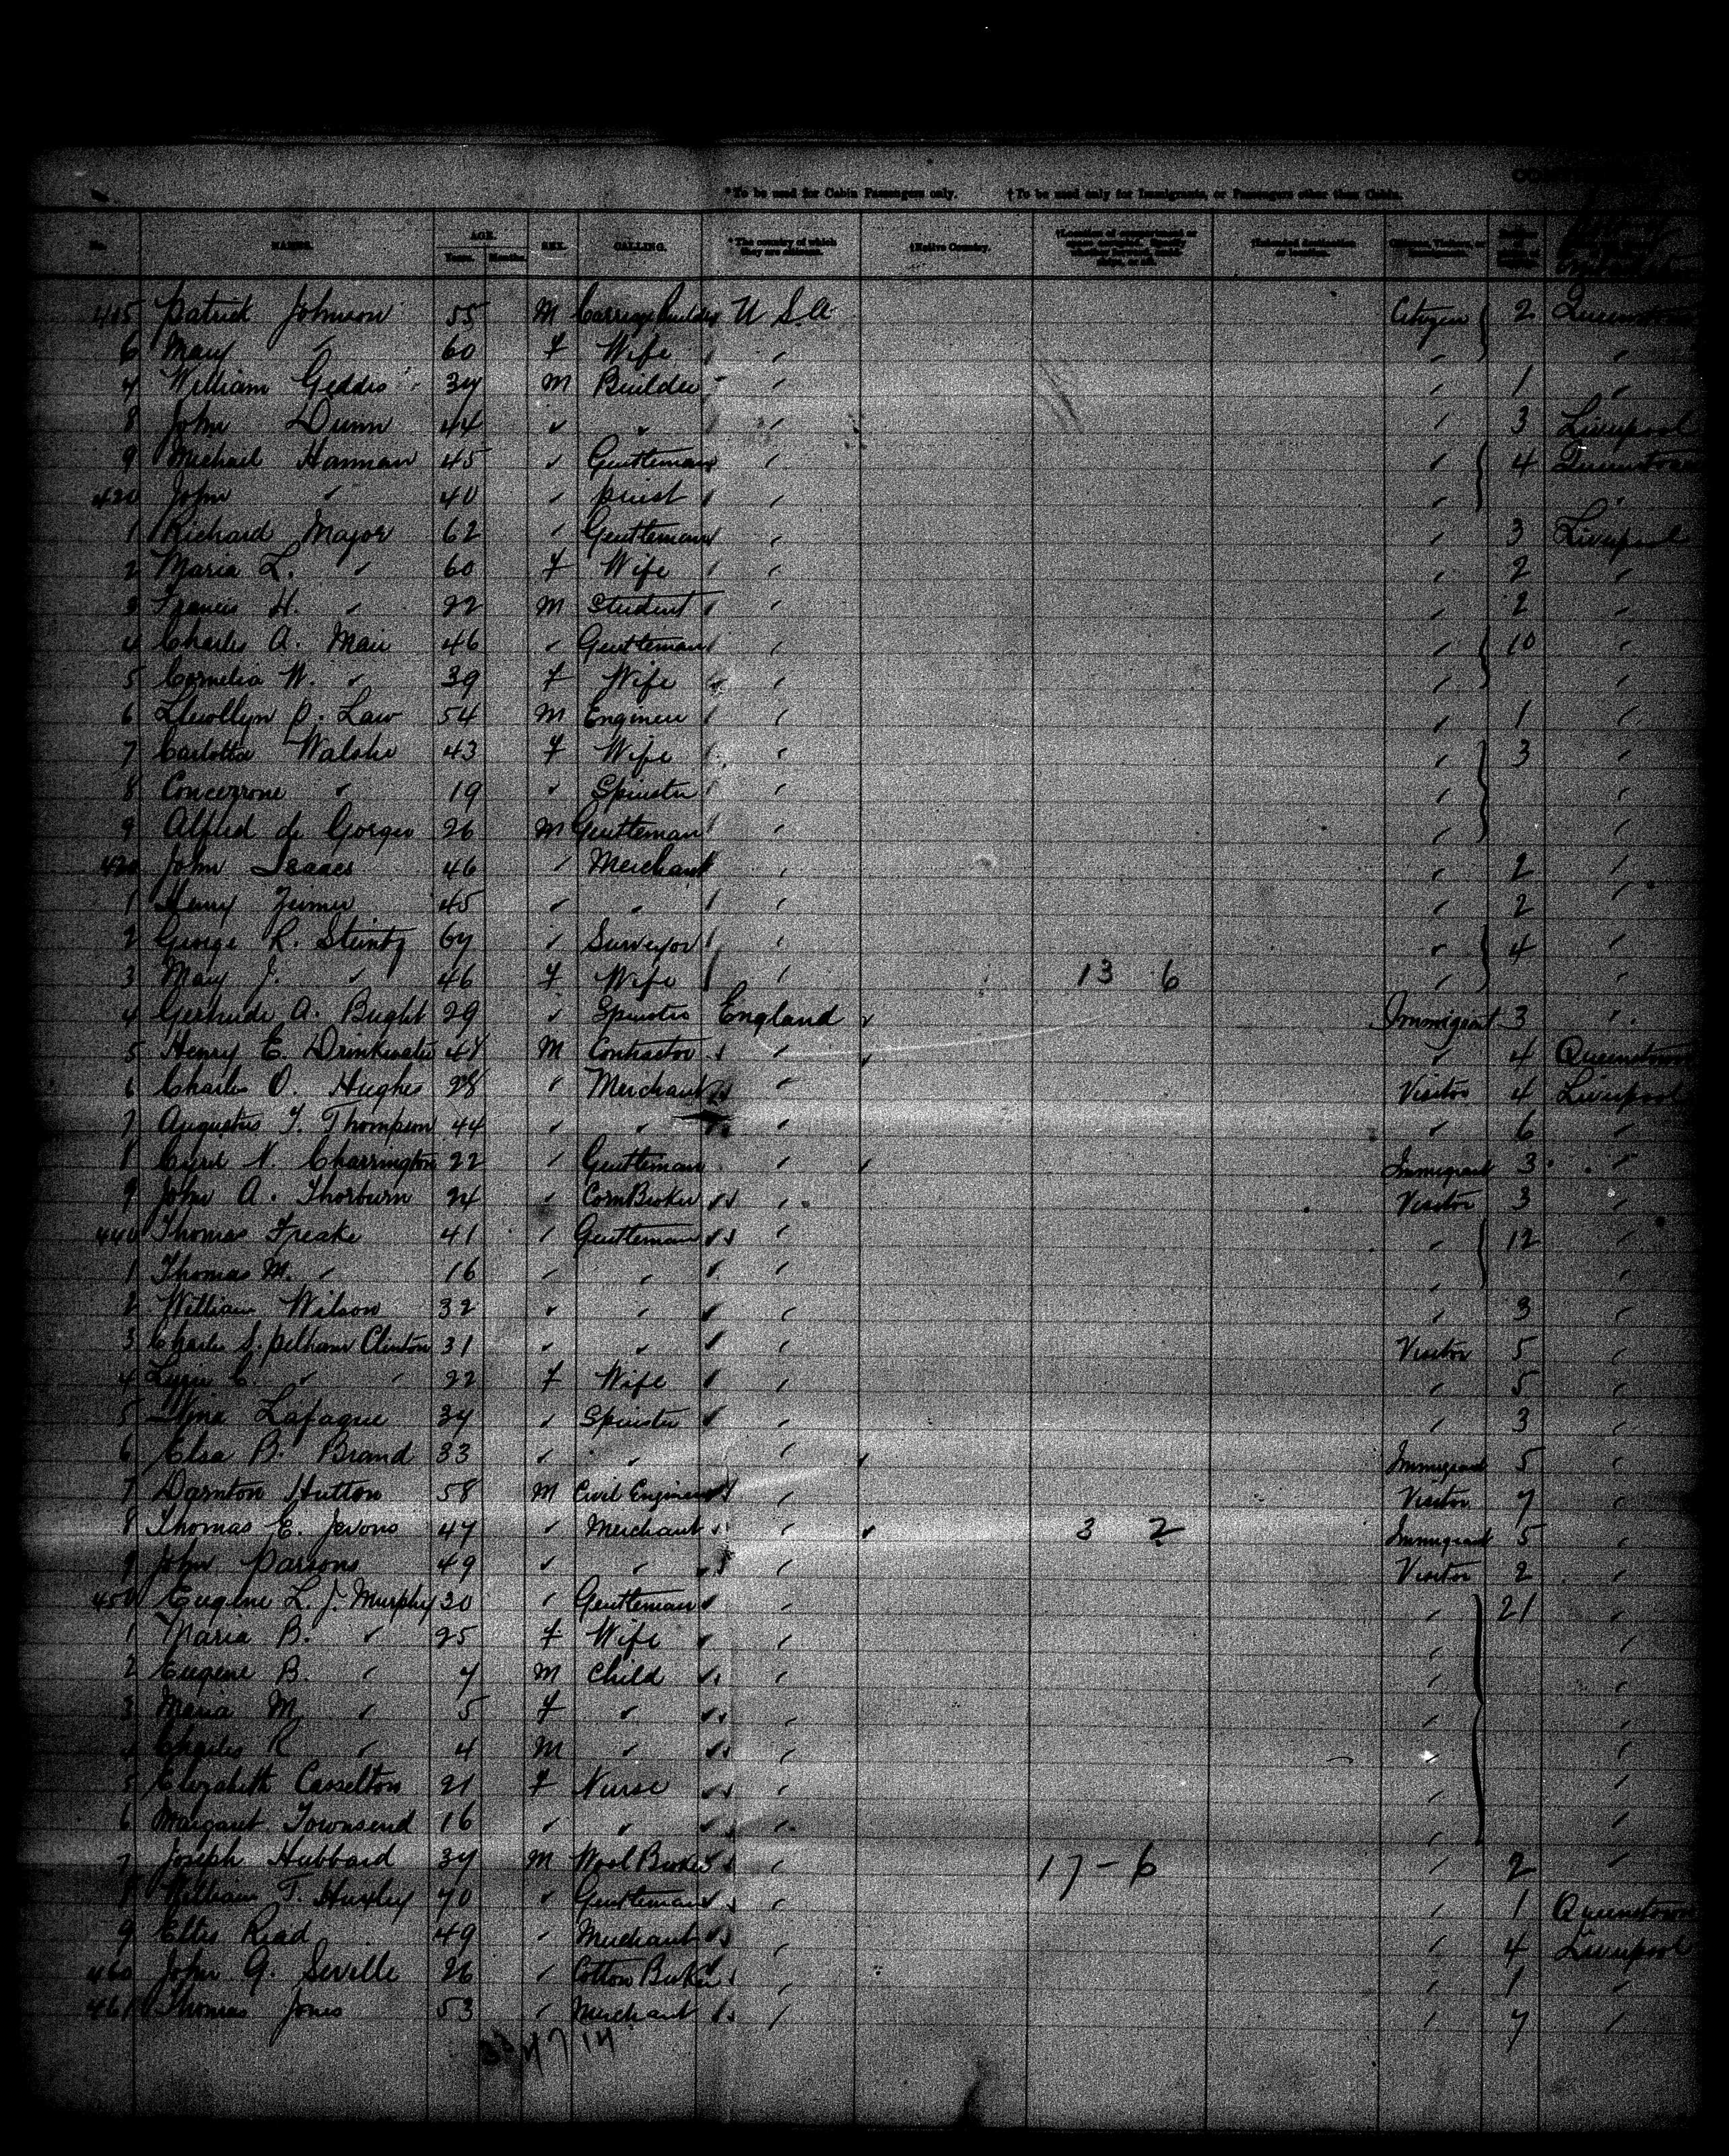 *To be used for Cabin Passengers only. †To be used only for Immigrants, or Passengers other than Cabin.
No. NAMES. AGE. SEX. CALLING. *The country of which they are citizens. †Native Country. †Intended destination or location.
Years. Months.
415 Patrick Johnson 55 M Carriage Builder U S.A Citizen 2 Queenstown
6 Mary " 60 F Wife " " "
7 William Geddis 34 M Builder " " 1 "
8 John Dunn 44 " " " " 3 Liverpool
9 Michael Hannan 45 " Gentleman " " 4 Queenstown
420 John " 40 " Priest " " "
1 Richard Major 62 " Gentleman " " 3 Liverpool
2 Maria L. " 60 F Wife " " 2 "
3 Francis H. " 22 M Student " " 2 "
4 Charles A. Mair 46 " Gentleman " " 10 "
5 Cornelia W. " 39 F Wife " " "
6 Llewollyn P. Law 54 M Engineer " " 1 "
7 Carlotta Walshe 43 F Wife " " 3 "
8 Concezrone " 19 " Spinster " " "
9 Alfred de Gorgeo 26 M Gentleman " " "
430 John Isaacs 46 " Merchant " " 2 "
1 Henry 45 " " " " 2 "
2 George R. Stuntz 67 " Surveyor " " 4 "
3 Mary J. " 46 F Wife " 13 6 " "
4 Gertrude A. Bught 29 " Spinster England Immigrant 3 "
5 Henry E. Drinkwater 47 M Contractor " " 4 Queenstown
6 Charles O. Hughes 28 " Merchant " Visitor 4 Liverpool
7 Augustus F. Thompson 44 " " " " 6 "
8 Cyril N. Charrington 22 " Gentleman " Immigrant 3 "
9 John A. Thorburn 24 " Corn Broker " Visitor 3 "
440 Thomas Freake 41 " Gentleman " " 12 "
1 Thomas M. " 16 " " " " "
2 William Wilson 32 " " " " 3 "
3 Charles S. Pelham Clinton 31 " " " Visitor 5 "
4 Lizzie C. " " 22 F Wife " " 5 "
5 Nina Lafague 34 " Spinster " " 3 "
6 Elsa B. Brand 33 " " " Immigrant 5 "
7 Darnton Hutton 58 M Civil Engineer " Visitor 7 "
8 Thomas E. Jevons 47 " Merchant " 3 2 Immigrant 5 "
9 John Parsons 49 " " " Visitor 2 "
450 Eugene L. J. Murphy 30 " Gentleman " " 21 "
1 Maria B. " 25 F Wife " " "
2 Eugene B. " 7 M Child " " "
3 Maria M " 5 F " " " "
4 Charles R " 4 M " " " "
5 Elizabeth Casselton 21 F Nurse " " "
6 Margaret Townsend 16 " " " " "
7 Joseph Hubbard 34 M Wool Broker " 17-6 " 2 "
8 William T. Huxley 70 " Gentleman " " 1 Queenstown
9 Ellis Read 49 " Merchant " " 4 Liverpool
460 John G. Seville 26 " Cotton Broker " " 1 "
461 Thomas Jones 53 " Merchant " " 7 "